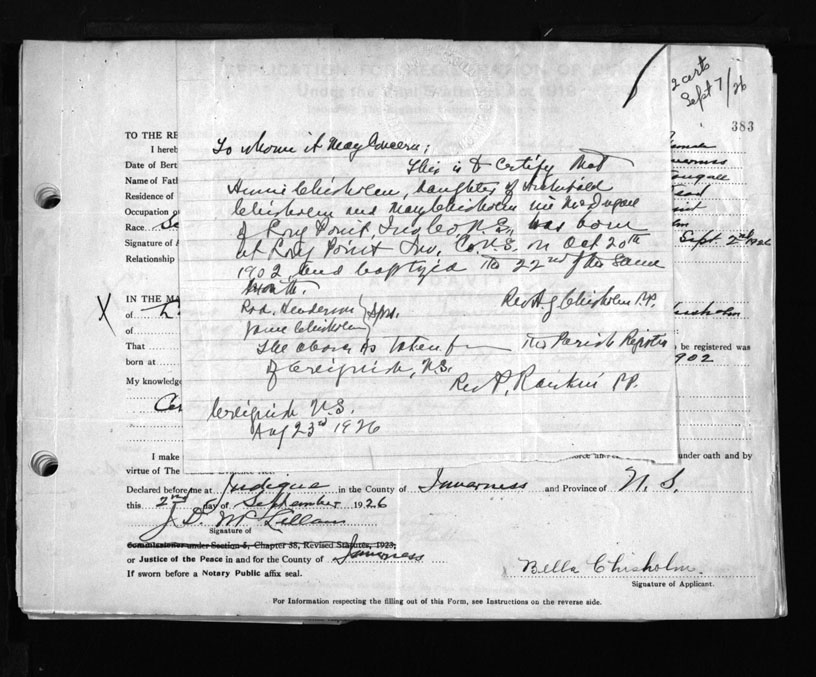 APPLICATION FOR REGISTRATION OF
Under the Vital Statistics Act, 1919
2 certs
Sept 7/26
383
TO THE RE
I hereb
Date of Bert
Name of Fath
Residence of
Occupation o
Race
Signature of A
Relationship
Sept. 2nd 1926
To whom it May Concern;
This is to Certify that
Annie Chisholm, daughter of Archibald
Chisholm and Mary Chisholm née McDugall
of Long Point, Inv. Co. N.S., was born
at Long Point Inv. Co. N.S. on Oct 20th
1902 and baptized the 22nd of the same
month.
Rev. A. J. Chisholm P.P.
Rod. Henderson
Janie Chisholm } Sprs.
The above is taken from the Parish Register
of Creignish, N.S.
Rev. A. Rankin P.P.
Creignish N.S.
Aug 23rd 1926
X
IN THE MA
of
of
That
to be registered was
born at
1902
My knowledg
I make
under oath and by
virtue of The
Declared before me at Judique in the County of Inverness and Province of N. S.
this 2nd day of September 1926
J. D. McLellan
Signature of
Commissioner under Section 6, Chapter 38, Revised Statutes, 1923,
or Justice of the Peace in and for the County of Inverness
If sworn before a Notary Public affix seal.
Bella Chisholm.
Signature of Applicant.
For Information respecting the filling out of this Form, see Instructions on the reverse side.